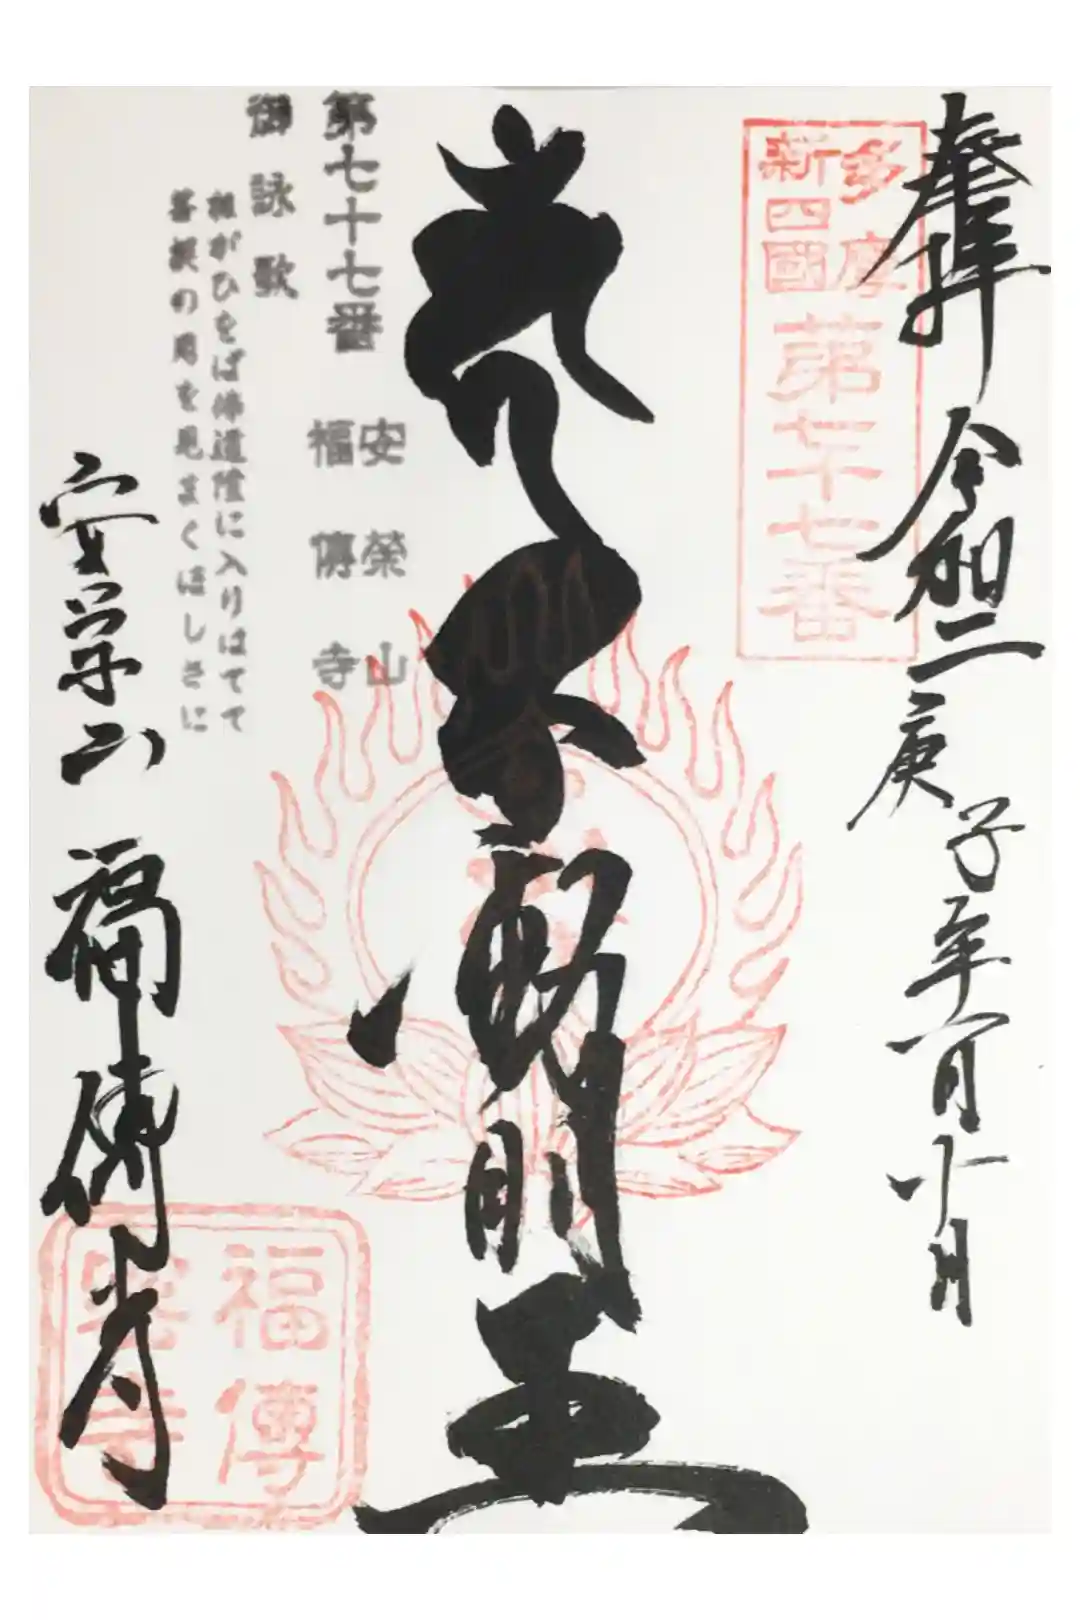 奉拝 令和二庚子年一月十一日
多摩
新四國
第七十七番
不動明王
第七十七番
安榮山
福傳寺
御詠歌
ねがひをば佛道陸に入りはてて
菩提の月を見まくほしさに
安榮山 福傳寺
福傳
密寺